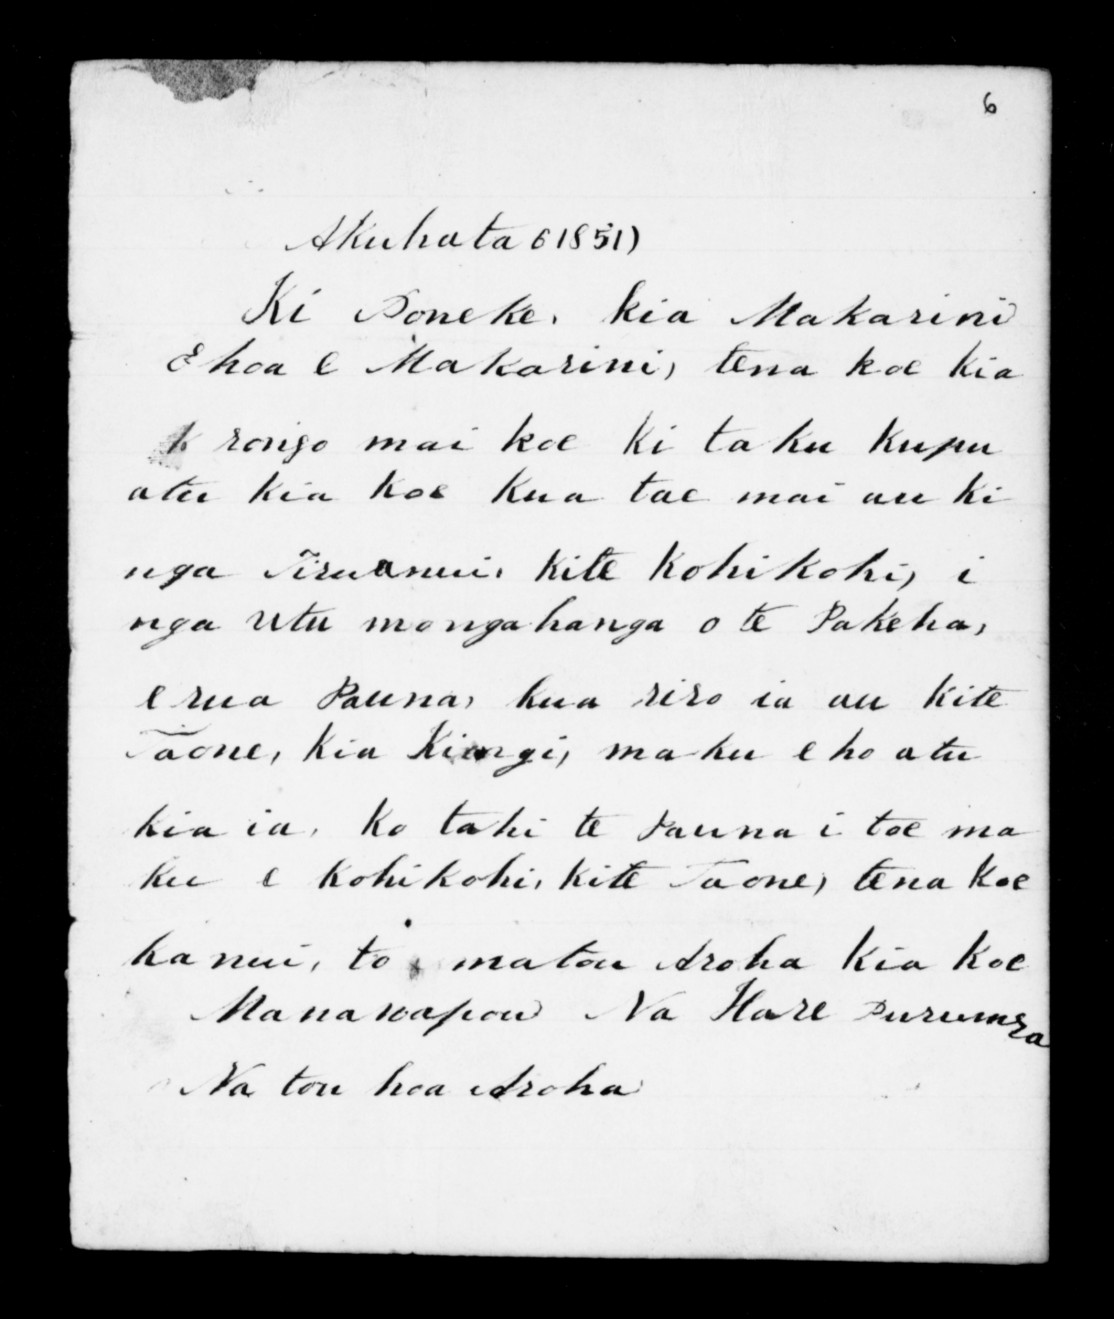 6
Akuhata 6 1851)
Ki Poneke, kia Makarini
E hoa e Makarini, tena koe kia
rongo mai koe ki taku kupu
atu kia koe kua tae mai au ki
nga Tiruanui, kite kohikohi, i
nga utu mongahanga o te Pakeha,
e rua Pauna, kua riro ia au kite
Taone, kia Kiingi, maku e ho atu
kia ia, ko tahi te Pauna i toe ma
ku e kohikohi, kite Taone, tena koe
ka nui, to matou Aroha kia koe
Manawapou Na Hare
Na tou hoa Aroha